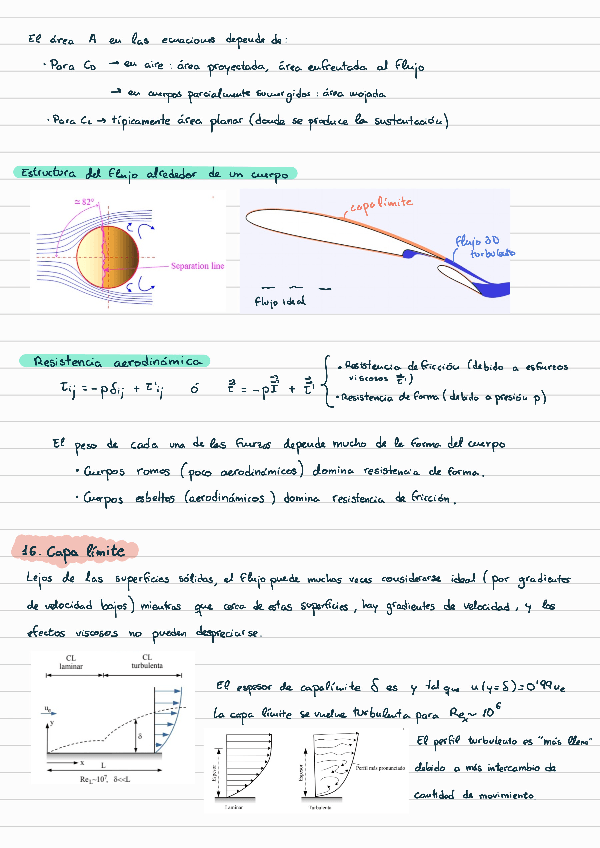 El área A en las ecuaciones depende de:
· Para CD → en aire: área proyectada, área enfrentada al flujo
→ en cuerpos parcialmente sumergidos: área mojada
· Para CL → típicamente área planar (donde se produce la sustentación)
Estructura del flujo alrededor de un cuerpo
≃82°
Separation line
capa límite
flujo 3D
turbulento
flujo ideal
Resistencia aerodinámica
τij = -pδij + τ'ij ó τ = -pI + τ'
· Resistencia de fricción (debido a esfuerzos
viscosos τ')
· Resistencia de forma (debido a presión p)
El peso de cada una de las fuerzas depende mucho de la forma del cuerpo
· Cuerpos romos (poco aerodinámicos) domina resistencia de forma.
· Cuerpos esbeltos (aerodinámicos) domina resistencia de fricción.
16. Capa límite
Lejos de las superficies sólidas, el flujo puede muchas veces considerarse ideal (por gradientes
de velocidad bajos) mientras que cerca de estas superficies, hay gradientes de velocidad, y los
efectos viscosos no pueden despreciarse.
CL
laminar
CL
turbulenta
y
δ
x
L
ReL~10⁷, δ<<L
El espesor de capa límite δ es y tal que u(y=δ)=0'99ue
La capa límite se vuelve turbulenta para Rex ~ 10⁶
Espesor
Laminar
Espesor
Perfil más pronunciado
Turbulenta
El perfil turbulento es "más lleno"
debido a más intercambio de
cantidad de movimiento.